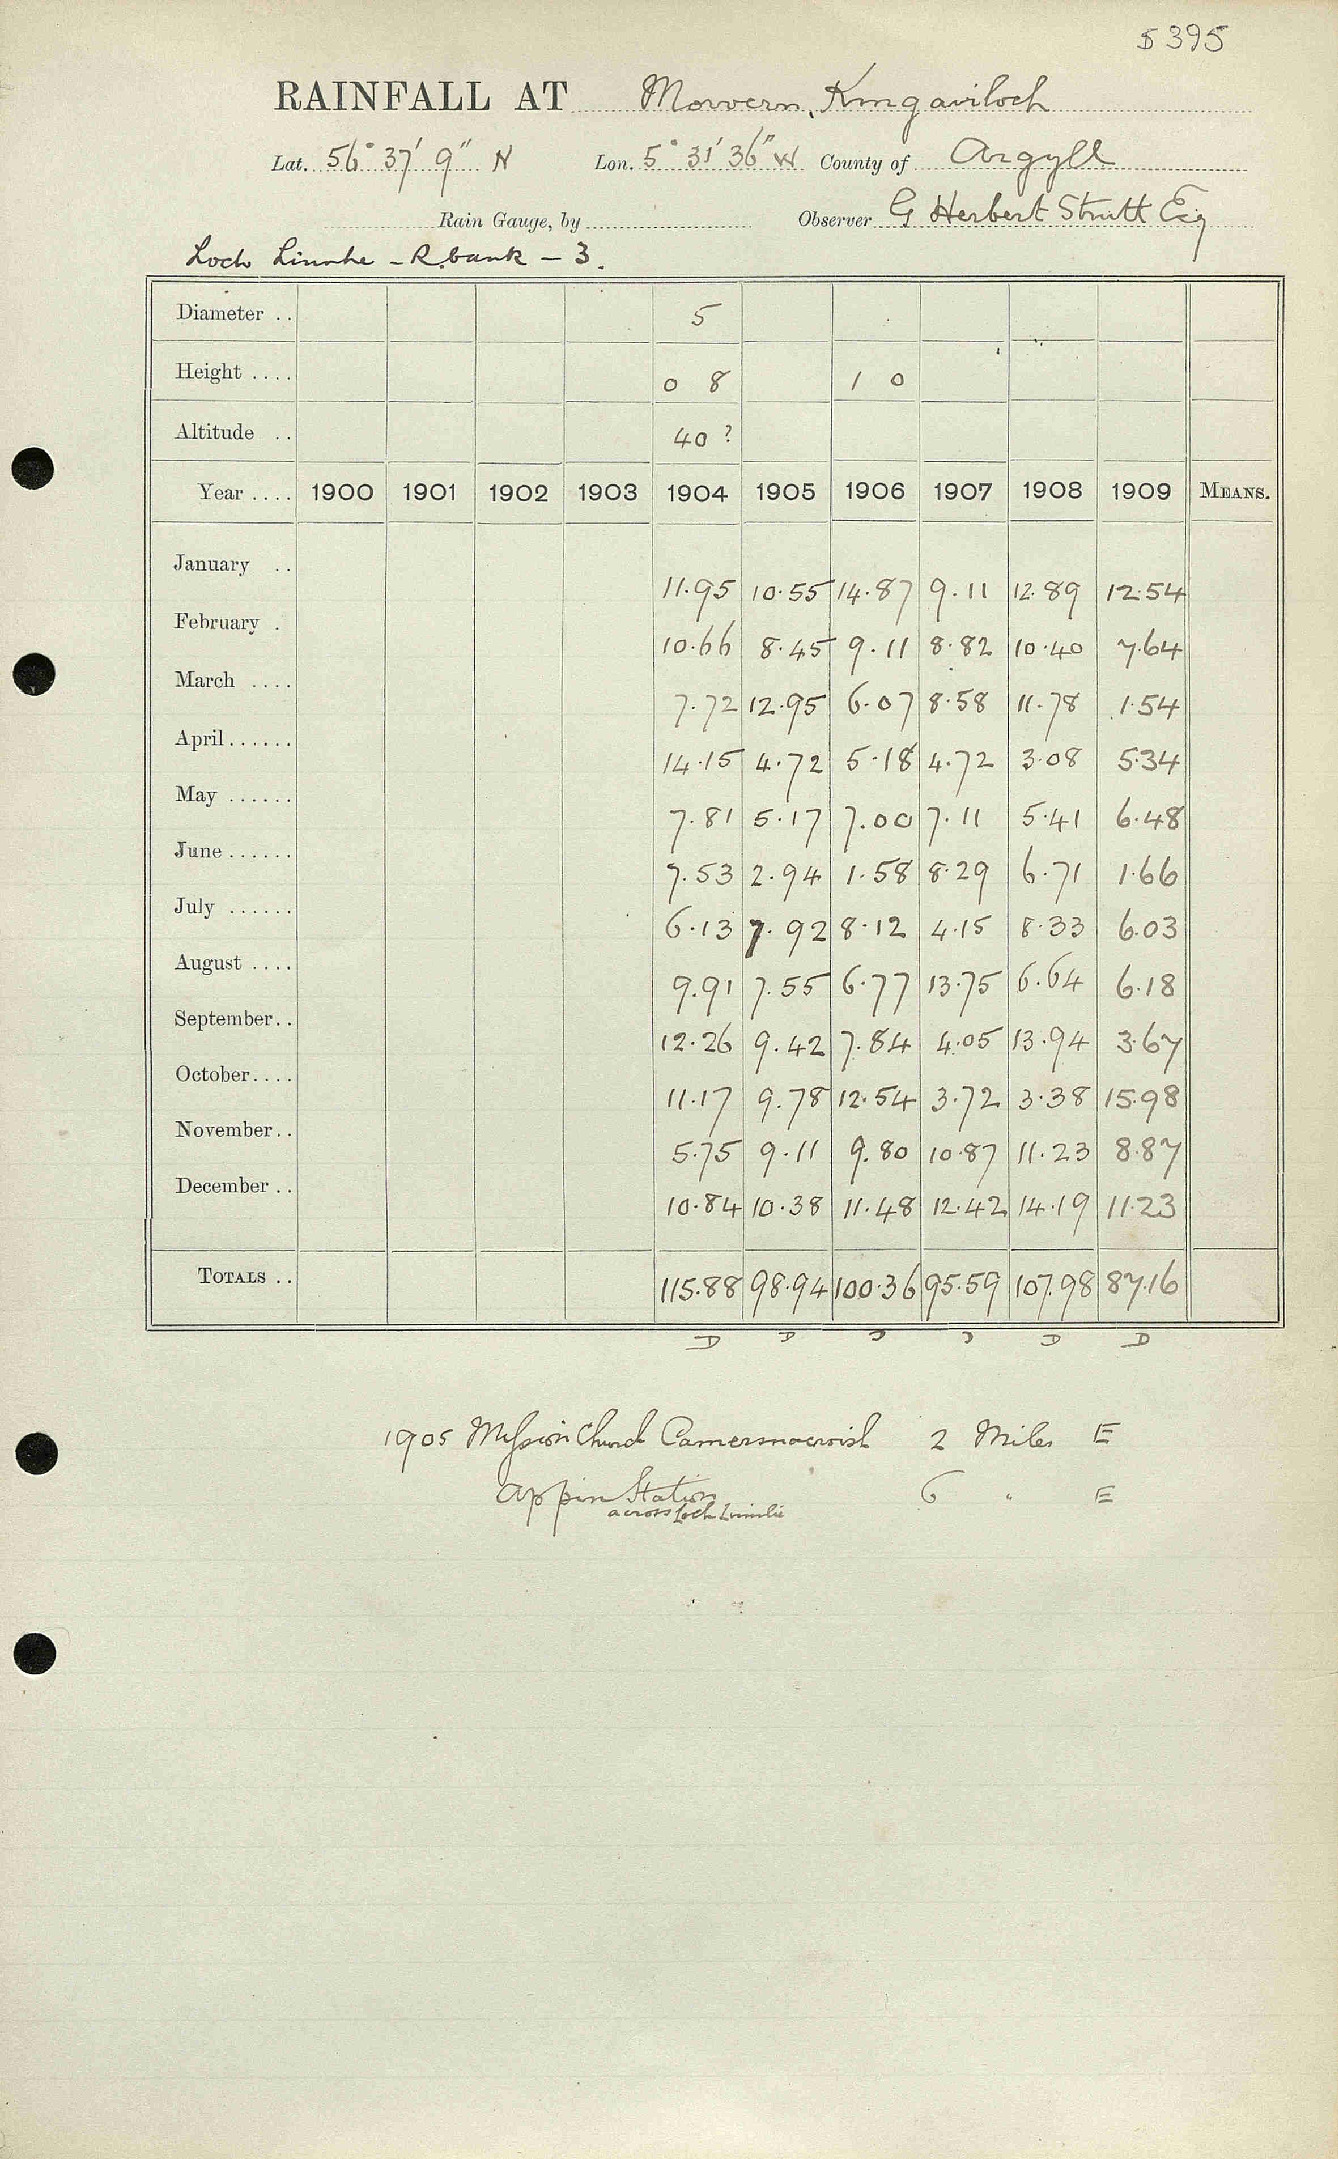 5395
RAINFALL AT Morvern, Kingairloch
Lat. 56° 37' 9" N Lon. 5° 31' 36" W County of Argyll
Rain Gauge, by Observer G Herbert Strutt Esq
Loch Linnhe - R. bank - 3.
Diameter .. 5
Height .... 0 8 1 0
Altitude .. 40 ?
Year .... 1900 1901 1902 1903 1904 1905 1906 1907 1908 1909 MEANS.
January .. 11.95 10.55 14.87 9.11 12.89 12.54
February . 10.66 8.45 9.11 8.82 10.40 7.64
March .... 7.72 12.95 6.07 8.58 11.78 1.54
April...... 14.15 4.72 5.18 4.72 3.08 5.34
May ...... 7.81 5.17 7.00 7.11 5.41 6.48
June...... 7.53 2.94 1.58 8.29 6.71 1.66
July ...... 6.13 7.92 8.12 4.15 8.33 6.03
August .... 9.91 7.55 6.77 13.75 6.64 6.18
September.. 12.26 9.42 7.84 4.05 13.94 3.67
October.... 11.17 9.78 12.54 3.72 3.38 15.98
November.. 5.75 9.11 9.80 10.87 11.23 8.87
December .. 10.84 10.38 11.48 12.42 14.19 11.23
TOTALS .. 115.88 98.94 100.36 95.59 107.98 87.16
D D D D D D
1905 Mission Church 2 Miles E
Appin Station 6 " E
across Loch Linnhe